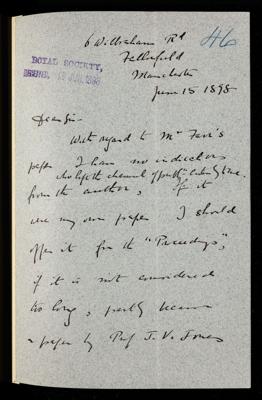 6 Wilbraham Rd
46
Fallowfield
Manchester
ROYAL SOCIETY,
June 15 1898
Dear Sir
With regard to Mr
paper I have no instructions
who left the chemical
from the author, If it
were my own paper I should
offer it for the "Proceedgs",
if it is not considered
too long, partly because
a paper by Prof J. V. Jones